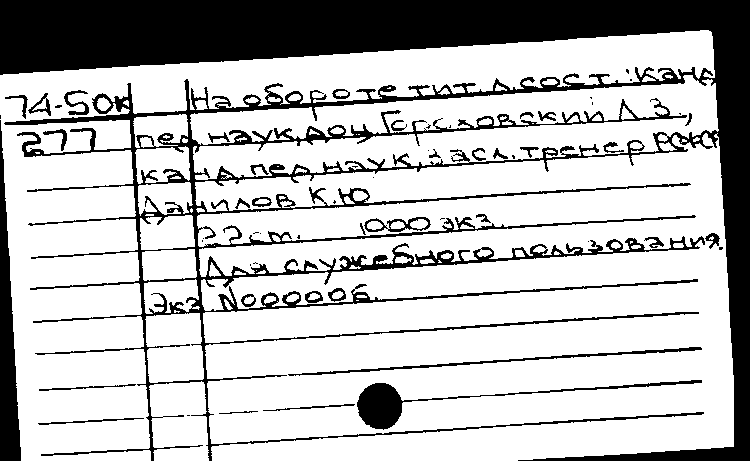 74-50к На обороте тит. л. сост.: канд
277 пед наук, доц Гороховский Л. З.,
канд. пед. наук, засл. тренер РСФСР
Данилов К.Ю
22 cm. 1000 экз.
Для служебного пользования.
Экз N00006.